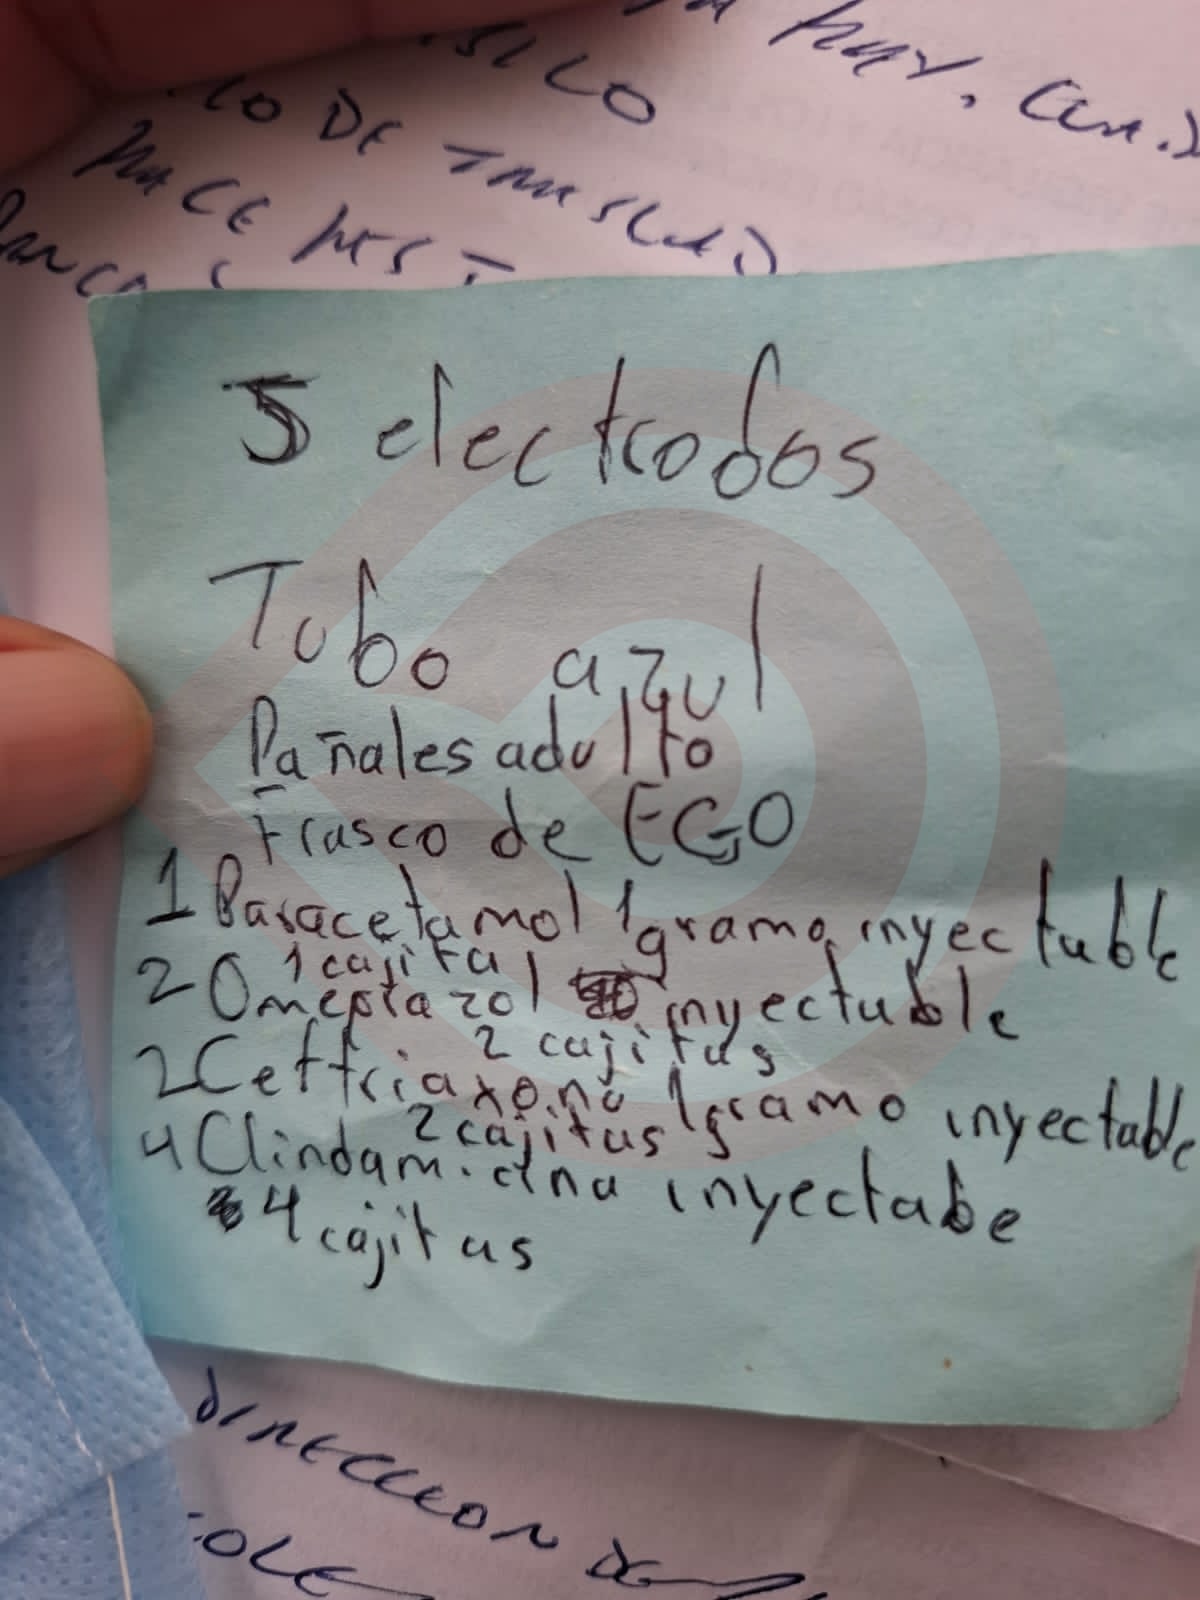 HAY, 
DE
HACE
5 electrodos
Tubo azul
Pañales adulto
Frasco de EGO
1 Paracetamol 1gramo inyectable
1 cajita
2 Omeprazol inyectable
2 cajitas
2 Ceftriaxona 1gramo inyectable
2 cajitas
4 Clindamicina inyectabe
4 cajitas
DIRECCION DE